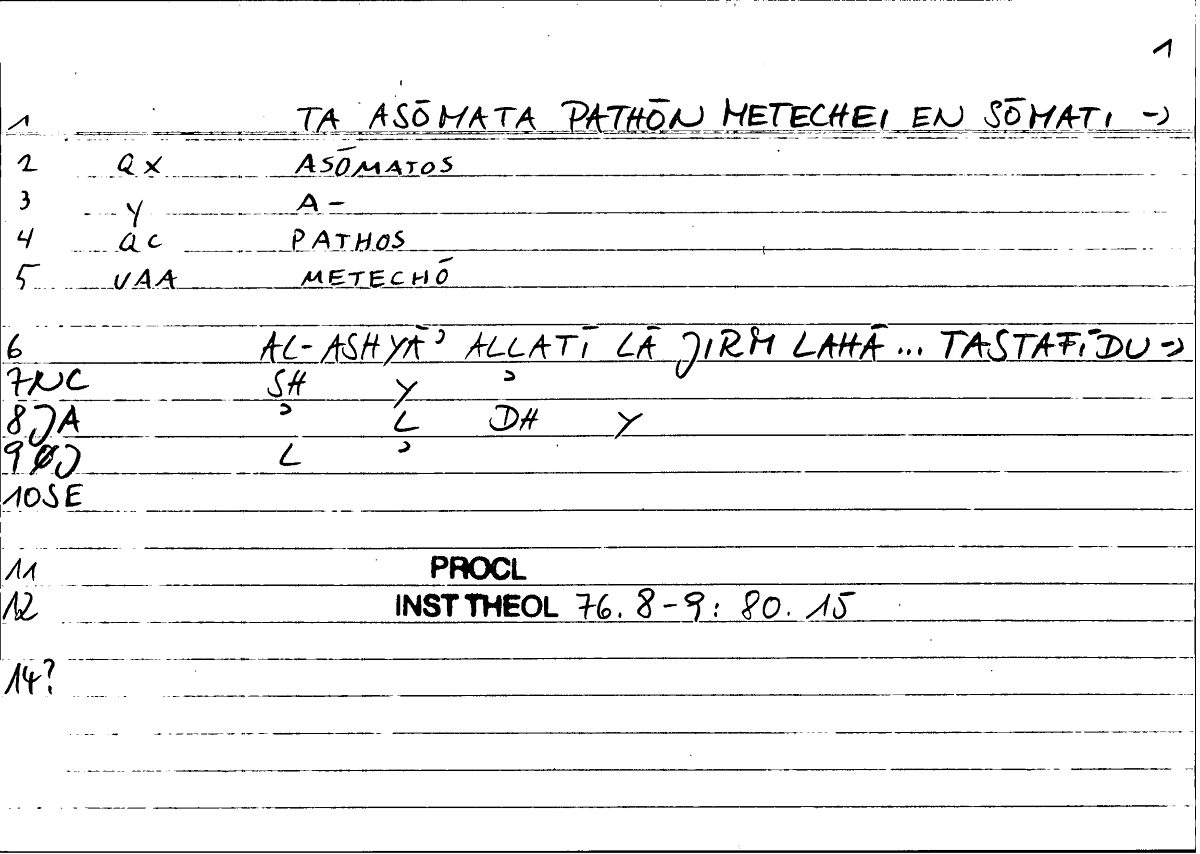 1
1 TA ASŌMATA PATHŌN METECHEI EN SŌMATI →
2 QX ASŌMATOS
3 Y A-
4 QC PATHOS
5 VAA METECHŌ
6 AL-ASHYĀʾ ALLATĪ LĀ JIRM LAHĀ... TASTAFĪDU →
7 NC SH Y ʾ
8 JA ʾ L DH Y
9 ØJ L ʾ
10 SE
11 PROCL
12 INST THEOL 76.8-9: 80.15
14?